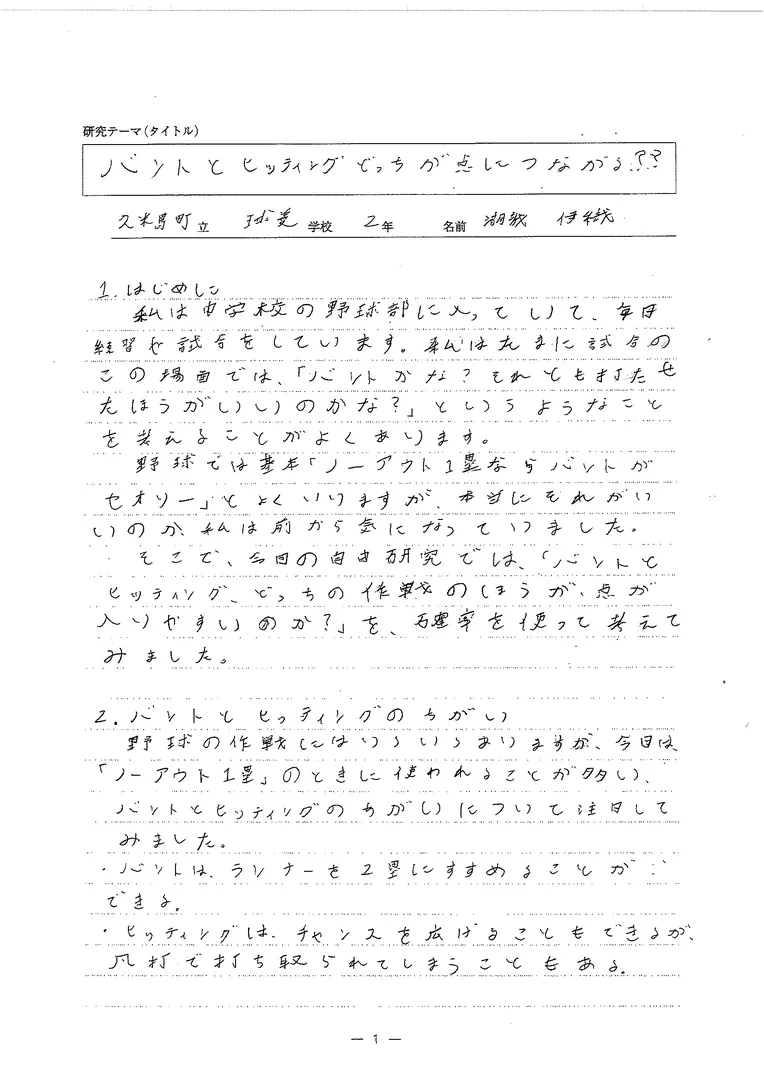 研究テーマ(タイトル)
バントとヒッティングどっちが点につながる??
久米島町立 球美学校 2年 名前 湖城 伊織
1. はじめに
私は中学校の野球部に入っていて、毎日
練習や試合をしています。私はたまに試合の
この場面では、「バントかな?それとも打たせ
たほうがいいのかな?」というようなこと
を考えることがよくあります。
野球では基本「ノーアウト1塁ならバントが
セオリー」とよくいいますが、本当にそれがい
いのか、私は前から気になっていました。
そこで、今回の自由研究では、「バントと
ヒッティング、どっちの作戦のほうが、点が
入りやすいのか?」を、確率を使って考えて
みました。
2. バントとヒッティングのちがい
野球の作戦にはいろいろありますが、今日は、
「ノーアウト1塁」のときに使われることが多い、
バントとヒッティングのちがいについて注目して
みました。
・バントは、ランナーを2塁にすすめることが
できる。
・ヒッティングは、チャンスを広げることもできるが、
凡打で打ち取られてしまうこともある。
― 1 ―